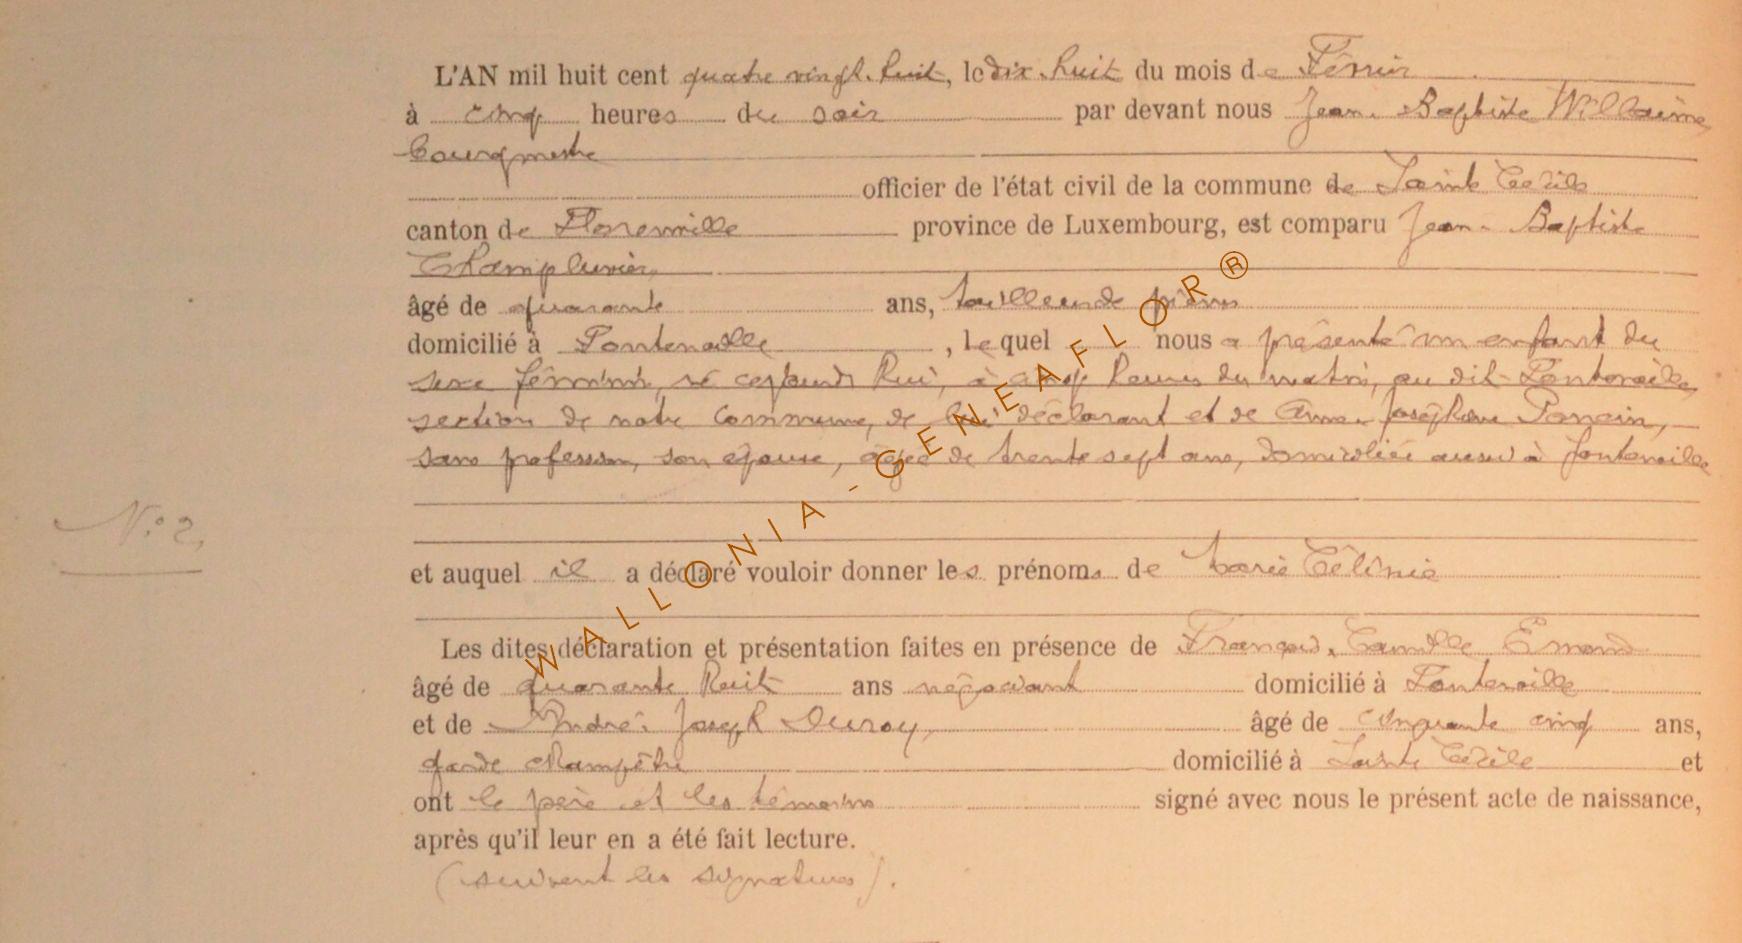 L'AN mil huit cent quatre vingt-huit, le dix-huit du mois de
à cinq heures du soir par devant nous Jean-Baptiste Willaime
bourgmestre
officier de l'état civil de la commune de Sainte Cécile
canton de Florenville province de Luxembourg, est comparu Jean-Baptiste
Champluvier,
âgé de quarante ans, tailleur de pierres
domicilié à Fontenoille, lequel nous a présenté un enfant du
sexe féminin, né cejourd'hui, à cinq heures du matin, au dit Fontenoille,
section de notre commune, de lui déclarant et de Anne-Josephine Poncin,
sans profession, son épouse, âgée de trente sept ans, domiciliée aussi à Fontenoille
N° 2,
et auquel il a déclaré vouloir donner les prénoms de Marie Célinie
Les dites déclaration et présentation faites en présence de François, Camille Emond
âgé de quarante huit ans négociant domicilié à Fontenoille
et de André-Joseph Duroy, âgé de cinquante cinq ans,
garde champêtre domicilié à Sainte Cécile et
ont le père et les témoins signé avec nous le présent acte de naissance,
après qu'il leur en a été fait lecture.
(suivent les signatures).
WALLONIA - GENEAFLOR ®